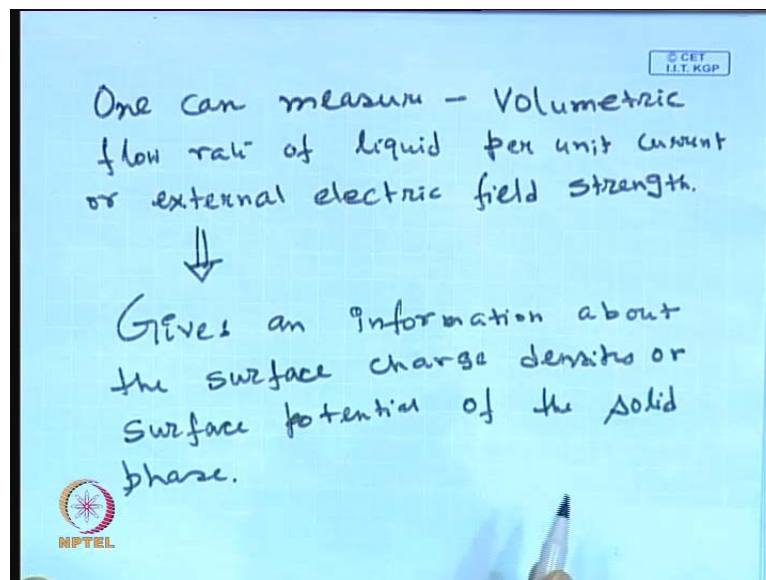 © CET
I.I.T. KGP
One can measure – Volumetric
flow rate of liquid per unit current
or external electric field strength.
⇓
Gives an information about
the surface charge density or
surface potential of the solid
phase.
NPTEL